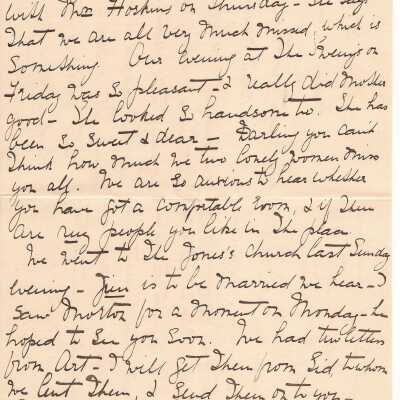 with Mrs Hoskins on Thursday - She says
That we are all very much missed, which is
Something. Our evening at The Ewing's on
Friday was so pleasant - & really did Mother
good - She looked so handsome to. She has
been so sweet & dear - Darling you can't
Think how much we two lonely women miss
you all. We are so anxious to hear whether
you have got a comfortable room, & if There
are any people you like in The place.
We went to The Jones's Church last Sunday
evening - is to be married we hear - I
Saw Morton for a moment on Monday - he
hoped to See you Soon. We had two letters
from Art - I will get Them from Sid, to whom
We lent Them, & Send Them on to you -